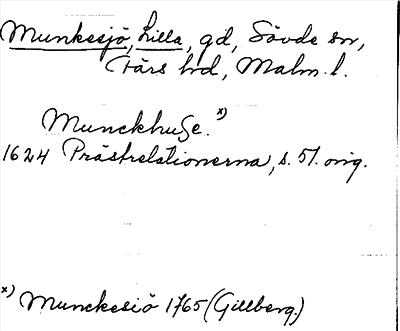 Munkesjö, Lilla, gd, Sövde sn,
Färs hd, Malm. l.
Munckhuße. x)
1624 Prästrelationerna, s. 51. orig.
x) Munckesiö 1765 (Gillberg.)